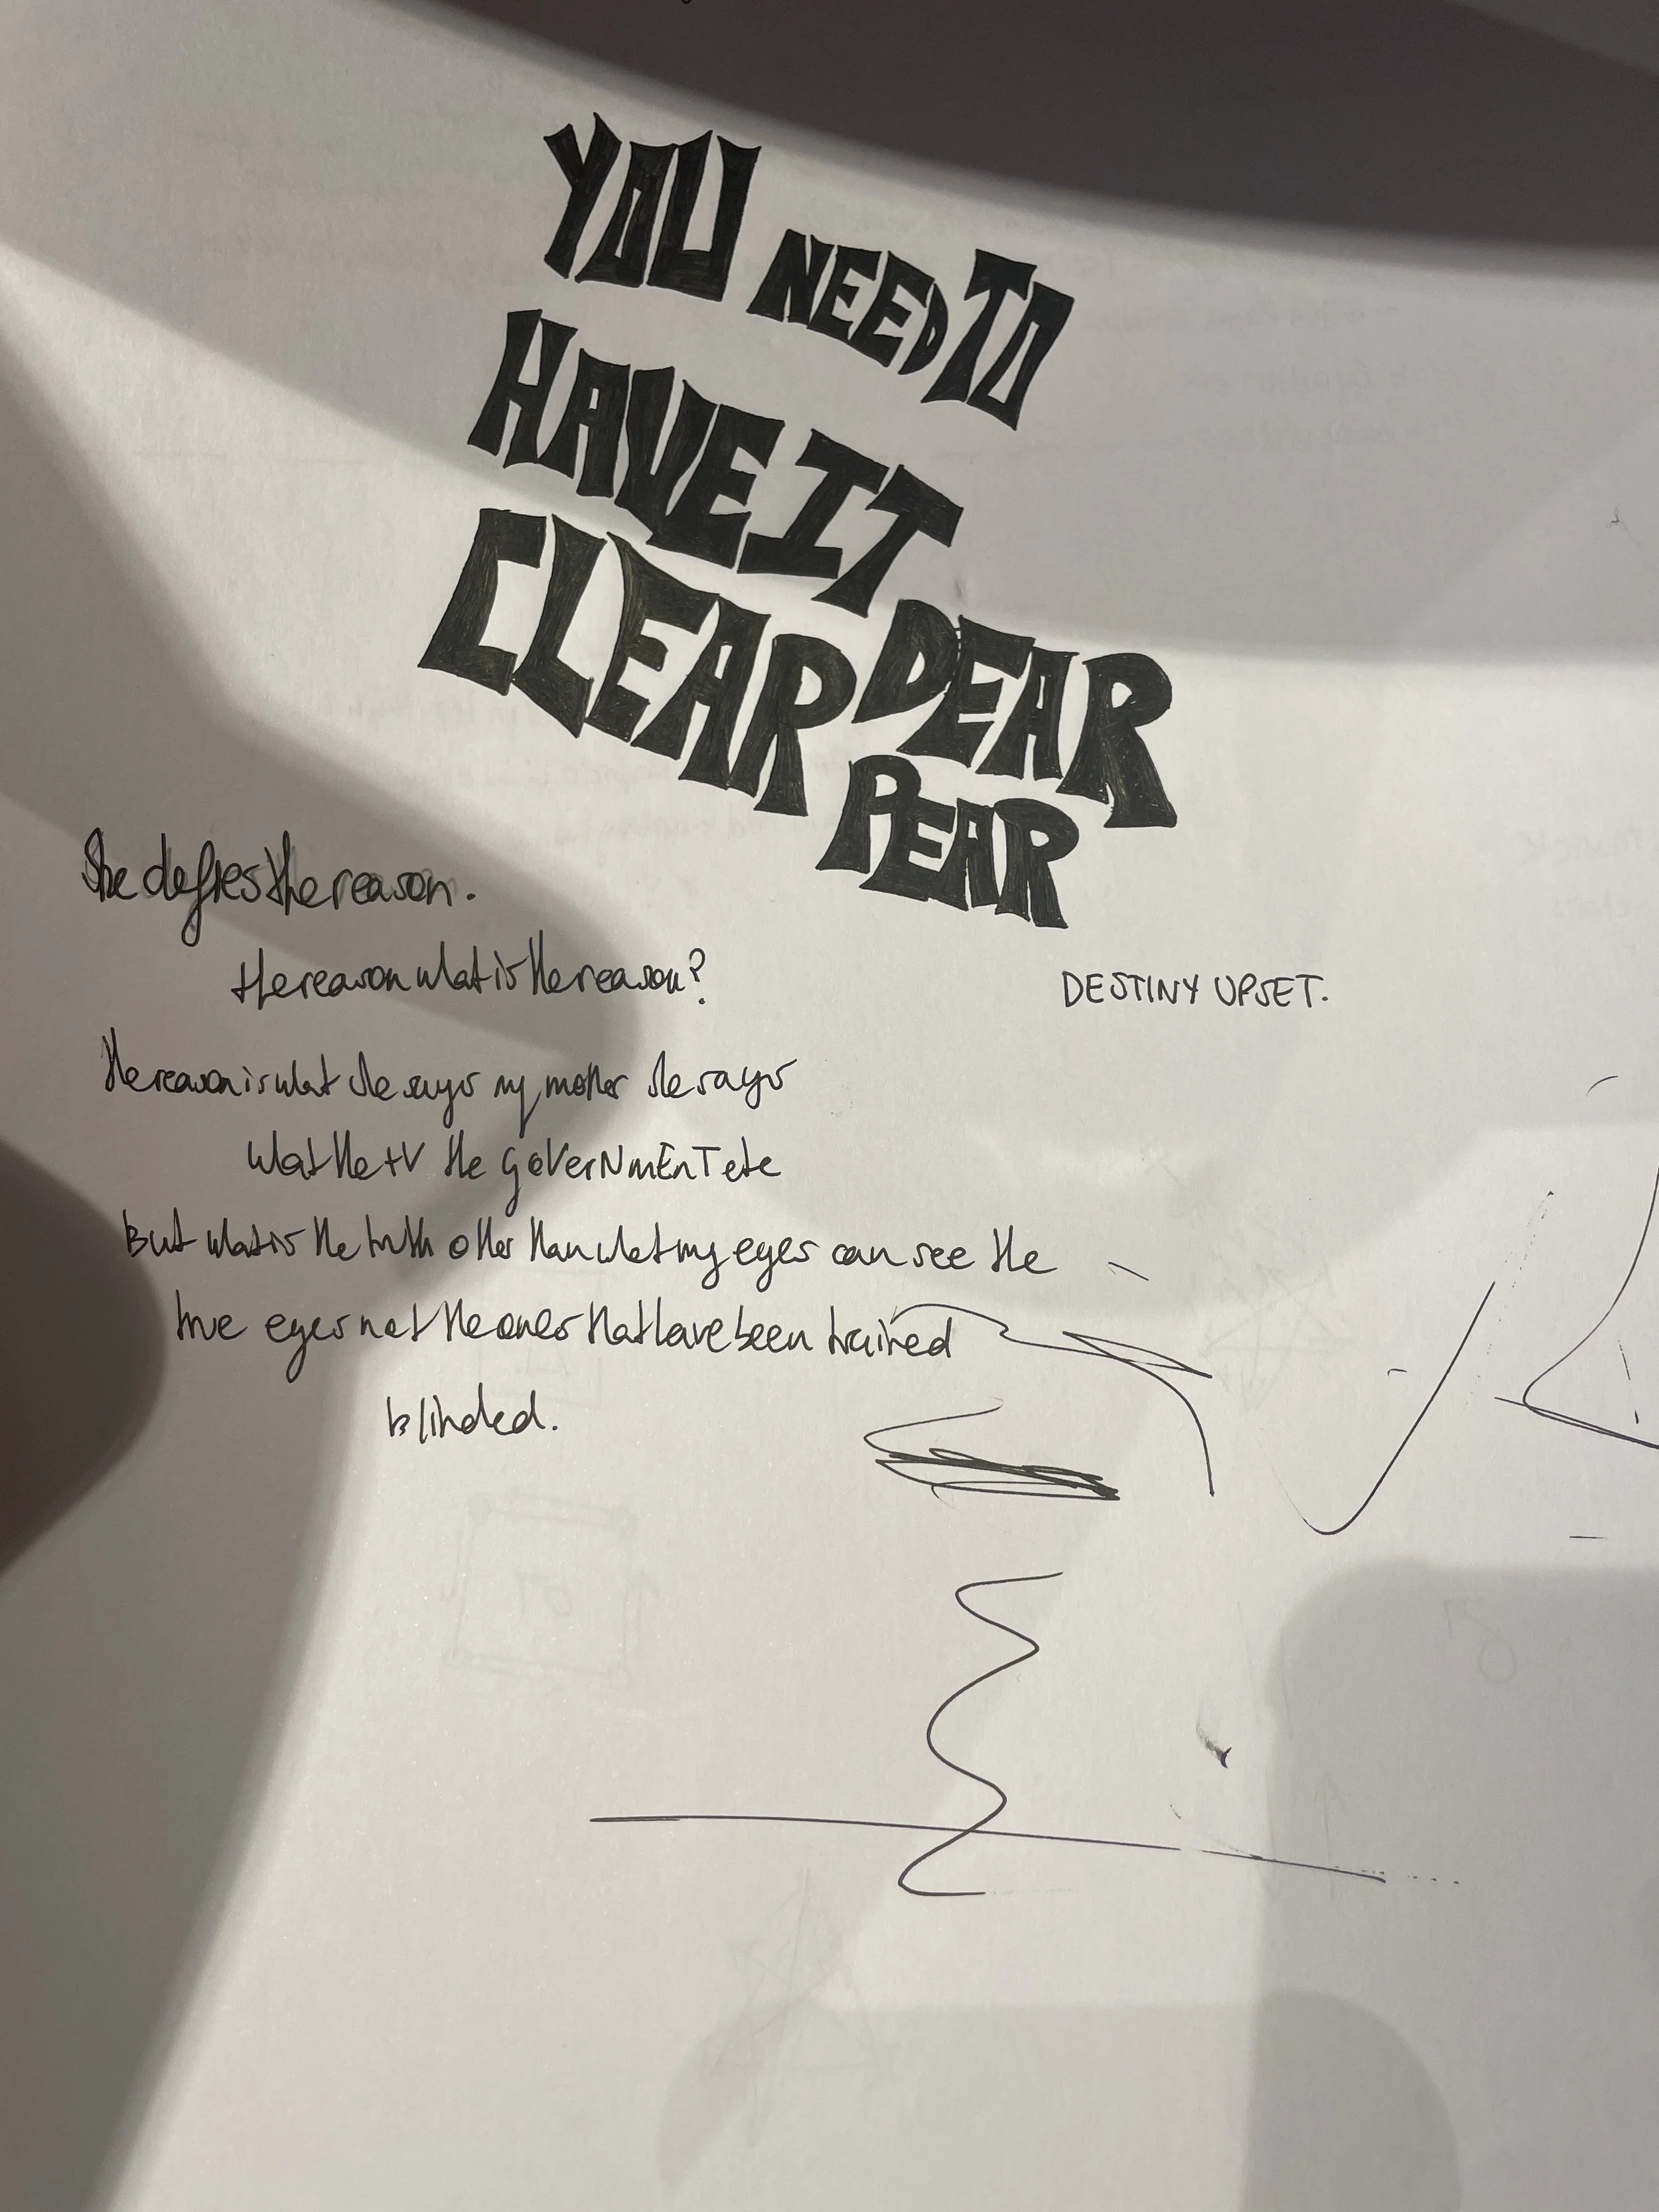 YOU NEED TO
HAVE IT
CLEAR DEAR
PEAR
She defies the reason.
the reason what is the reason?
DESTINY UPSET.
the reason is what she says my mother she says
what the tv the goVerNmEnT etc
But what is the truth other than what my eyes can see the
true eyes not the ones that have been trained
blinded.